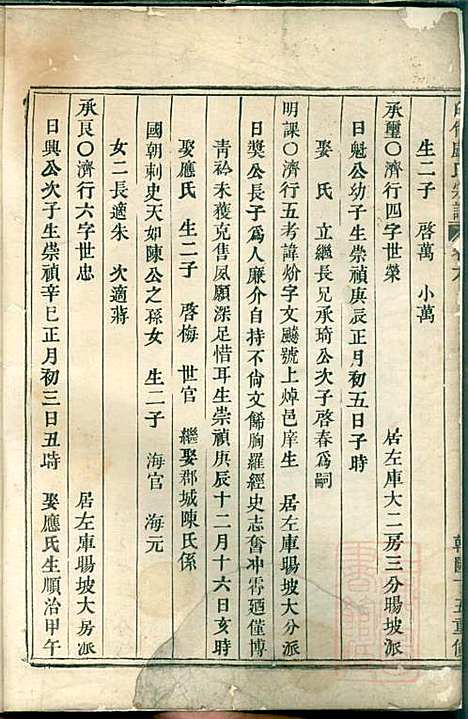 生二子 啓萬 小萬
承璽〇濟行四字世榮 居左庫大二房三分暘坡派
日魁公幼子生崇禎庚辰正月初五日子時
娶 氏 立繼長兄承琦公次子啓春爲嗣
明課〇濟行五考諱炌字文颺號上焯邑庠生 居左庫暘坡大分派
日奬公長子爲人廉介自持不尙文餙胸羅經史志奮冲霄廼僅博
青衿未獲克售夙願深足惜耳生崇禎庚辰十二月十六日亥時
娶應氏 生二子 啓梅 世官 繼娶郡城陳氏係
國朝刺史天如陳公之孫女 生二子 海官 海元
女二長適朱 次適蔣
承良〇濟行六字世忠 居左庫暘坡大房派
日興公次子生崇禎辛巳正月初三日丑時 娶應氏生順治甲午